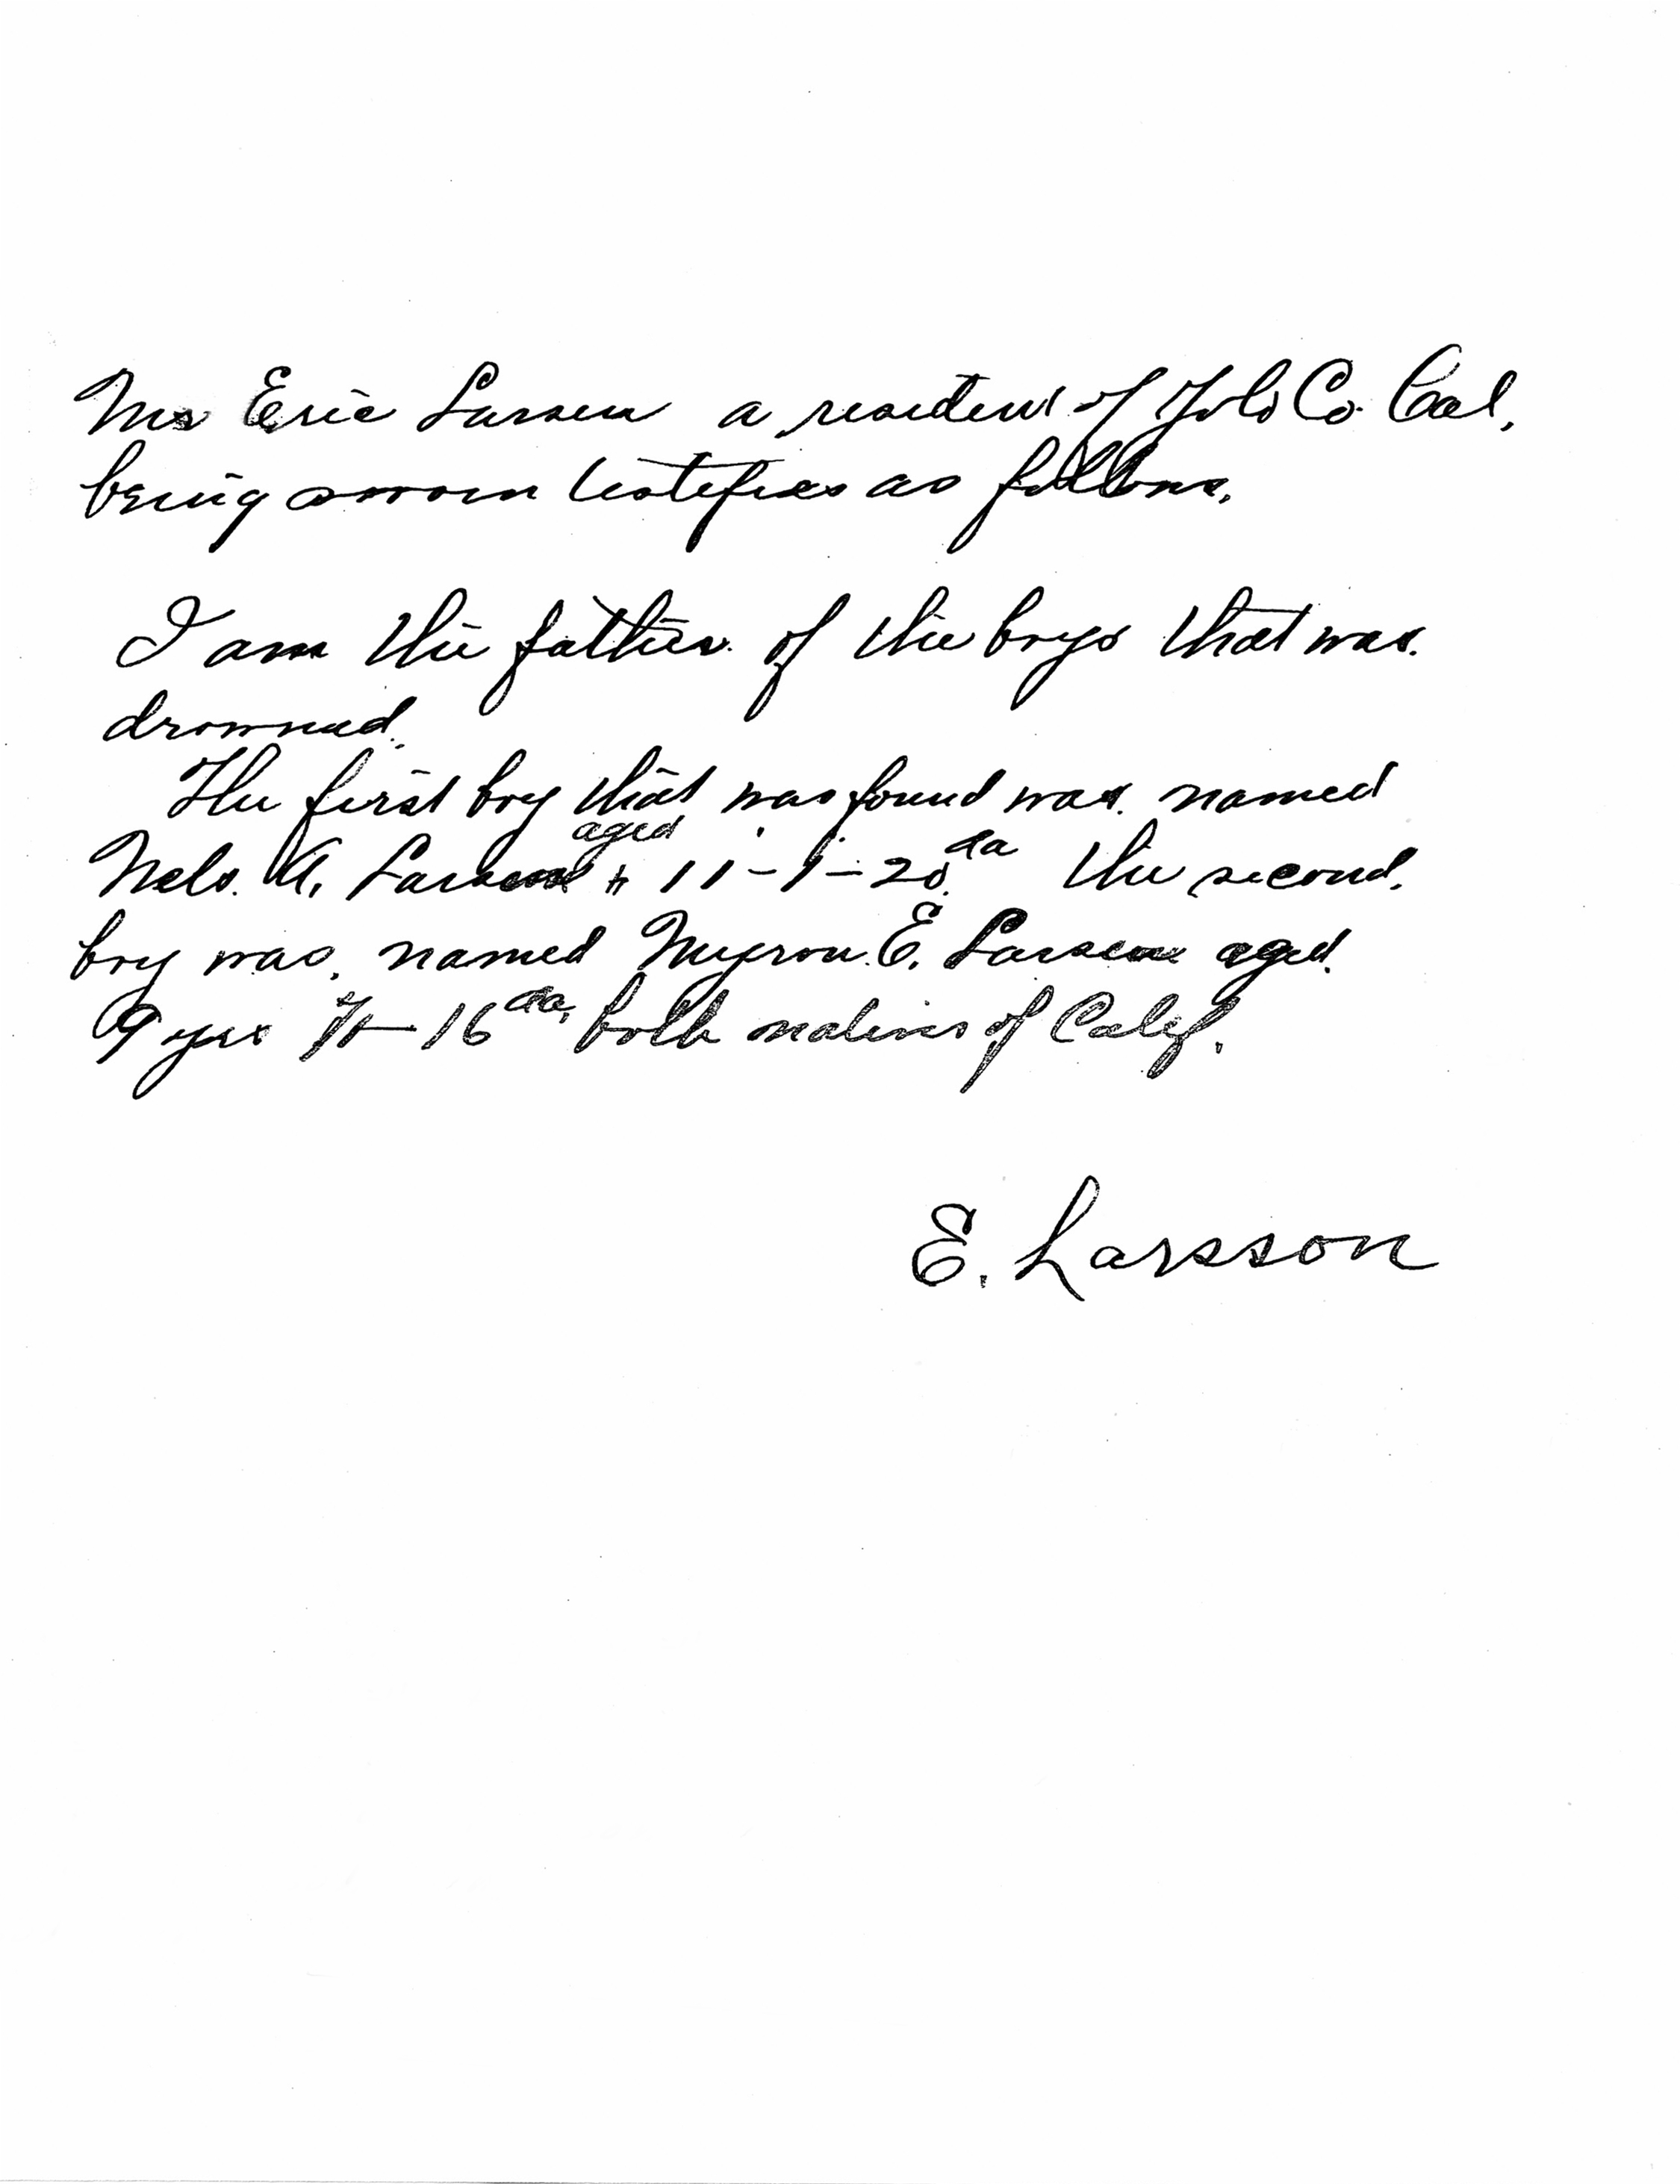 Mr Eric Larsen a resident of Yolo Co. Cal,
being sworn testifies as follows,
I am the father of the boys that was
drowned.
The first boy that was found was named
aged
Nels. A. Larsen 11-1-20 da the second
boy was named Myron. E. Larsen aged
9 yrs 16 da, both natives of Calif.
E. Larsson